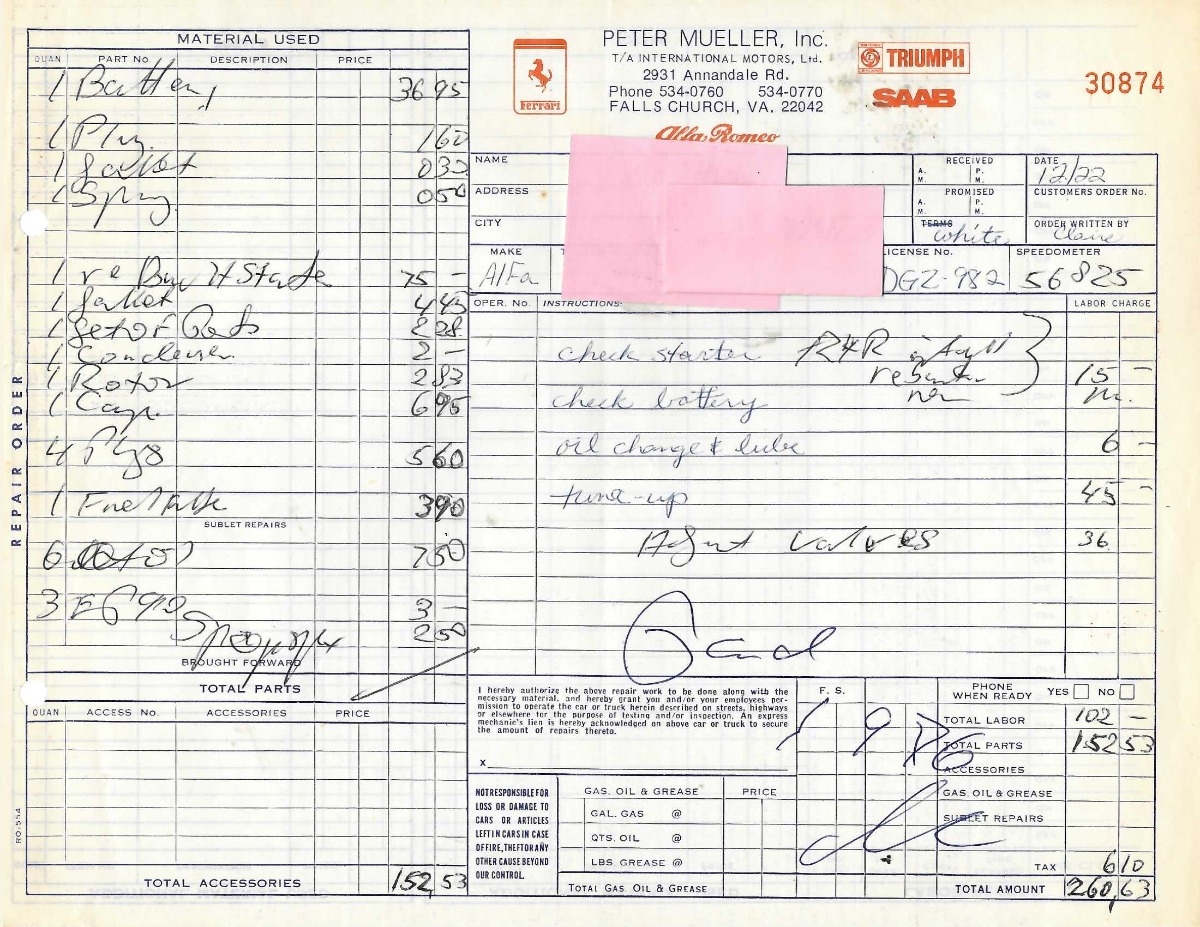 MATERIAL USED
QUAN PART No. DESCRIPTION PRICE
1 Battery 36 95
1 Plug. 1 60
1 gasket 0 32
1 Spring. 0 50
1 re Built Starter 75 -
1 gasket 4 45
1 set of Pts 2 28
1 Condenser. 2 -
1 Rotor 2 83
1 Cap. 6 95
4 Plgs 5 60
1 Fuel 3 90
SUBLET REPAIRS
6 7 50
3 3 -
2 50
BROUGHT FORWARD
TOTAL PARTS
QUAN ACCESS No. ACCESSORIES PRICE
TOTAL ACCESSORIES 152 53
REPAIR ORDER
RO-554
Ferrari
PETER MUELLER, Inc.
T/A INTERNATIONAL MOTORS, Ltd.
2931 Annandale Rd.
Phone 534-0760 534-0770
FALLS CHURCH, VA. 22042
Alfa Romeo
BRITISH LEYLAND
TRIUMPH
SAAB
30874
NAME
ADDRESS
CITY
RECEIVED
A. M. P. M.
PROMISED
A. M. P. M.
TERMS
white
DATE
12/22
CUSTOMERS ORDER No.
ORDER WRITTEN BY
MAKE
Alfa
LICENSE No.
DGZ-982
SPEEDOMETER
56825
OPER. No. INSTRUCTIONS: LABOR CHARGE
check starter R&R install
15 -
check battery
oil change & lube 6 -
tune-up 45 -
Adjust valves 36
I hereby authorize the above repair work to be done along with the
necessary material, and hereby grant you and/or your employees per-
mission to operate the car or truck herein described on streets, highways
or elsewhere for the purpose of testing and/or inspection. An express
mechanic's lien is hereby acknowledged on above car or truck to secure
the amount of repairs thereto.
X
F. S.
PHONE WHEN READY YES NO
TOTAL LABOR 102 -
TOTAL PARTS 152 53
ACCESSORIES
GAS, OIL & GREASE
SUBLET REPAIRS
TAX 6 10
TOTAL AMOUNT 260,63
NOT RESPONSIBLE FOR
LOSS OR DAMAGE TO
CARS OR ARTICLES
LEFT IN CARS IN CASE
OF FIRE, THEFT OR ANY
OTHER CAUSE BEYOND
OUR CONTROL.
GAS, OIL & GREASE PRICE
GAL. GAS @
QTS. OIL @
LBS. GREASE @
TOTAL GAS, OIL & GREASE